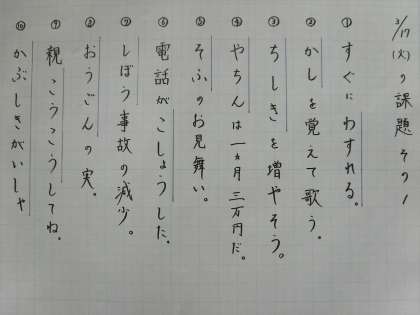 3/17(火)の課題その1
① すぐにわすれる。
② かしを覚えて歌う。
③ ちしきを増やそう。
④ やちんは一ヵ月三万円だ。
⑤ そふのお見舞い。
⑥ 電話がこしょうした。
⑦ しぼう事故の減少。
⑧ おうごんの実。
⑨ 親こうこうしてね。
⑩ かぶしきがいしゃ